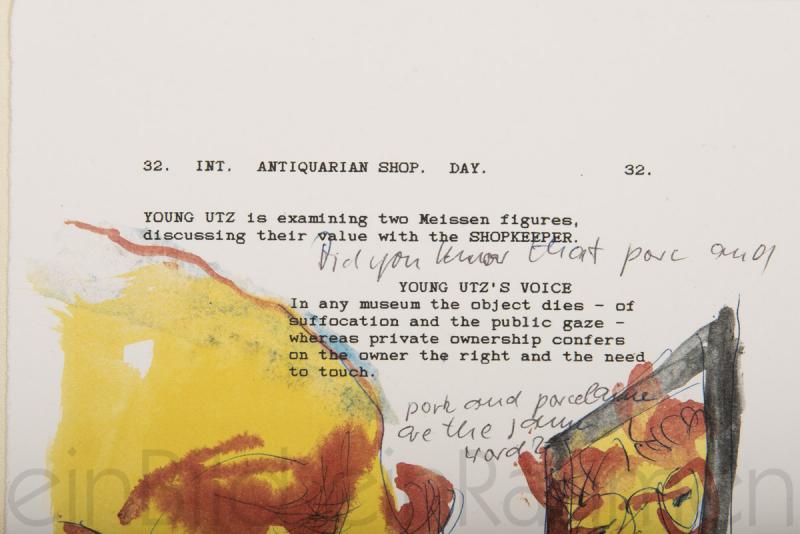 32. INT. ANTIQUARIAN SHOP. DAY. 32.
YOUNG UTZ is examining two Meissen figures,
discussing their value with the SHOPKEEPER.
Did you know that porc and
YOUNG UTZ'S VOICE
In any museum the object dies - of
suffocation and the public gaze -
whereas private ownership confers
on the owner the right and the need
to touch.
pork and porcelaine
are the same
word?
einBild keinRahmen